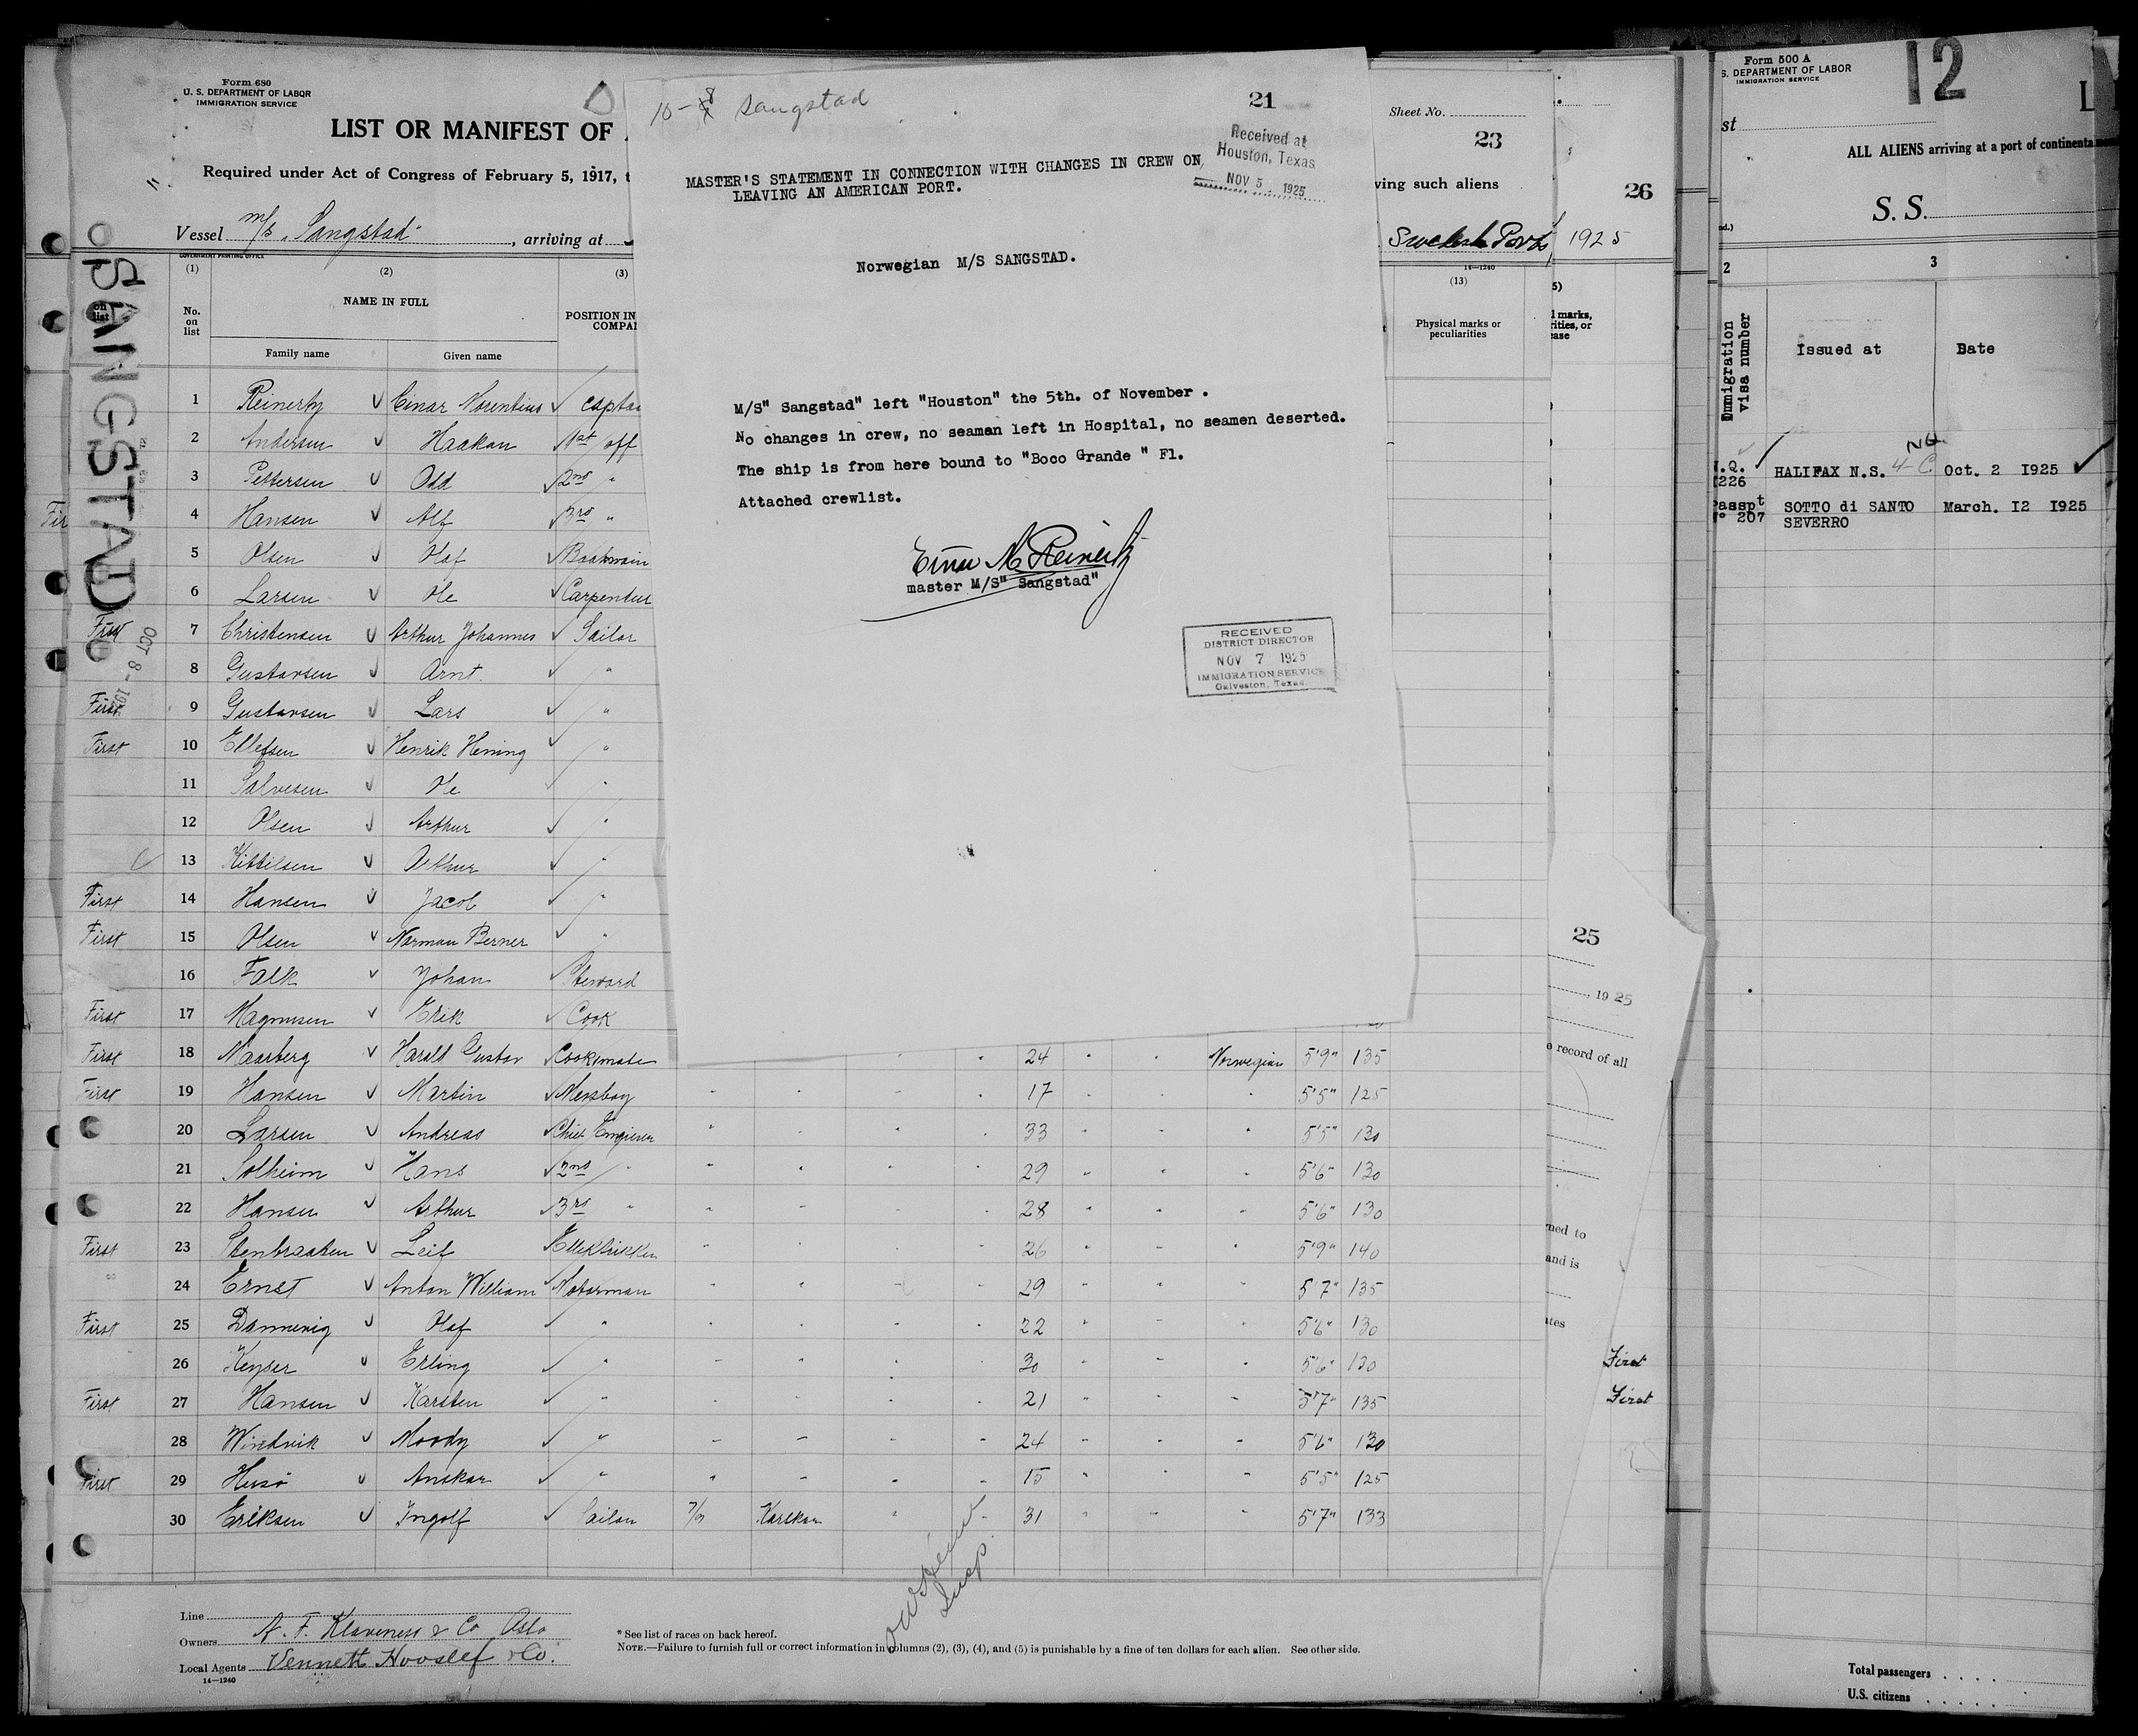 Form 680
U. S. DEPARTMENT OF LABOR
IMMIGRATION SERVICE
LIST OR MANIFEST OF
Required under Act of Congress of February 5, 1917,
Vessel M/S "Sangstad", arriving at
GOVERNMENT PRINTING OFFICE
(1) (2) (3)
No. on list
NAME IN FULL
POSITION IN
Family name Given name
SANGSTAD
OCT 8 - 192
1 Reinertz Einar Norentius
2 Andersen Haakon 1st off
3 Pettersen Odd 2nd "
4 Hansen Alf 3rd "
5 Olsen Olaf Boatswain
6 Larsen Ole Carpenter
First 7 Christensen Arthur Johannes Sailor
8 Gustavsen Arnt. "
First 9 Gustavsen Lars "
First 10 Ellefsen Henrik Hening "
11 Salvesen Ole "
12 Olsen Arthur "
13 Kittilsen Arthur "
First 14 Hansen Jacob "
First 15 Olsen Norman Berner "
16 Falk Johan Steward
First 17 Magnusen Erik Cook
First 18 Naarberg Harald Gustav Cooksmate 24 Norwegian 5'9" 135
First 19 Hansen Martin Messboy 17 5'5" 125
20 Larsen Andreas Chief Engineer 33 5'5" 130
21 Solheim Hans 2nd " 29 5'6" 130
22 Hansen Arthur 3rd " 28 5'6" 130
First 23 Stenbraaten Leif Ellektrikken 26 5'9" 140
24 Ernst Anton William Motorman 29 5'7" 135
First 25 Dannevig Olaf " 22 5'6" 130
26 Keyser Erling " 30 5'6" 130
First 27 Hansen Karsten " 21 5'7" 135
28 Windvik Moody " 24 5'6" 130
First 29 Husø Anskar " 15 5'5" 125
30 Eriksen Ingolf Sailor 7/9 31 5'7" 133
Line
Owners A. F. Klaveness & Co Oslo
Local Agents Vennett Hvoslef & Co.
14—1240
* See list of races on back hereof.
NOTE.—Failure to furnish full or correct information in columns (2), (3), (4), and (5) is punishable by a fine of ten dollars for each alien. See other side.
Insp.
10-8 Sangstad
21
Received at
Houston, Texas
NOV 5. 1925
MASTER'S STATEMENT IN CONNECTION WITH CHANGES IN CREW ON
LEAVING AN AMERICAN PORT.
Norwegian M/S SANGSTAD.
M/S" Sangstad" left "Houston" the 5th. of November .
No changes in crew, no seamen left in Hospital, no seamen deserted.
The ship is from here bound to "Boco Grande " Fl.
Attached crewlist.
Einar N Reinertz
master M/S" Sangstad"
RECEIVED
DISTRICT DIRECTOR
NOV 7 1925
IMMIGRATION SERVICE
Galveston, Texas.
Sheet No.
23
ving such aliens
Swedish Ports
14—1240
(13)
Physical marks or
peculiarities
26
1925
5)
l marks,
rities, or
ease
25
1925
e record of all
med to
and is
ates
First
First
Form 500 A
S. DEPARTMENT OF LABOR
IMMIGRATION SERVICE
12
L
st
ALL ALIENS arriving at a port of continental
S. S.
2 3
Immigration
visa number
Issued at Date
N.Q.
I226 HALIFAX N.S. 4-C NQ Oct. 2 I925
Passpt
N° 207 SOTTO di SANTO
SEVERRO March. I2 I925
Total passengers
U.S. citizens